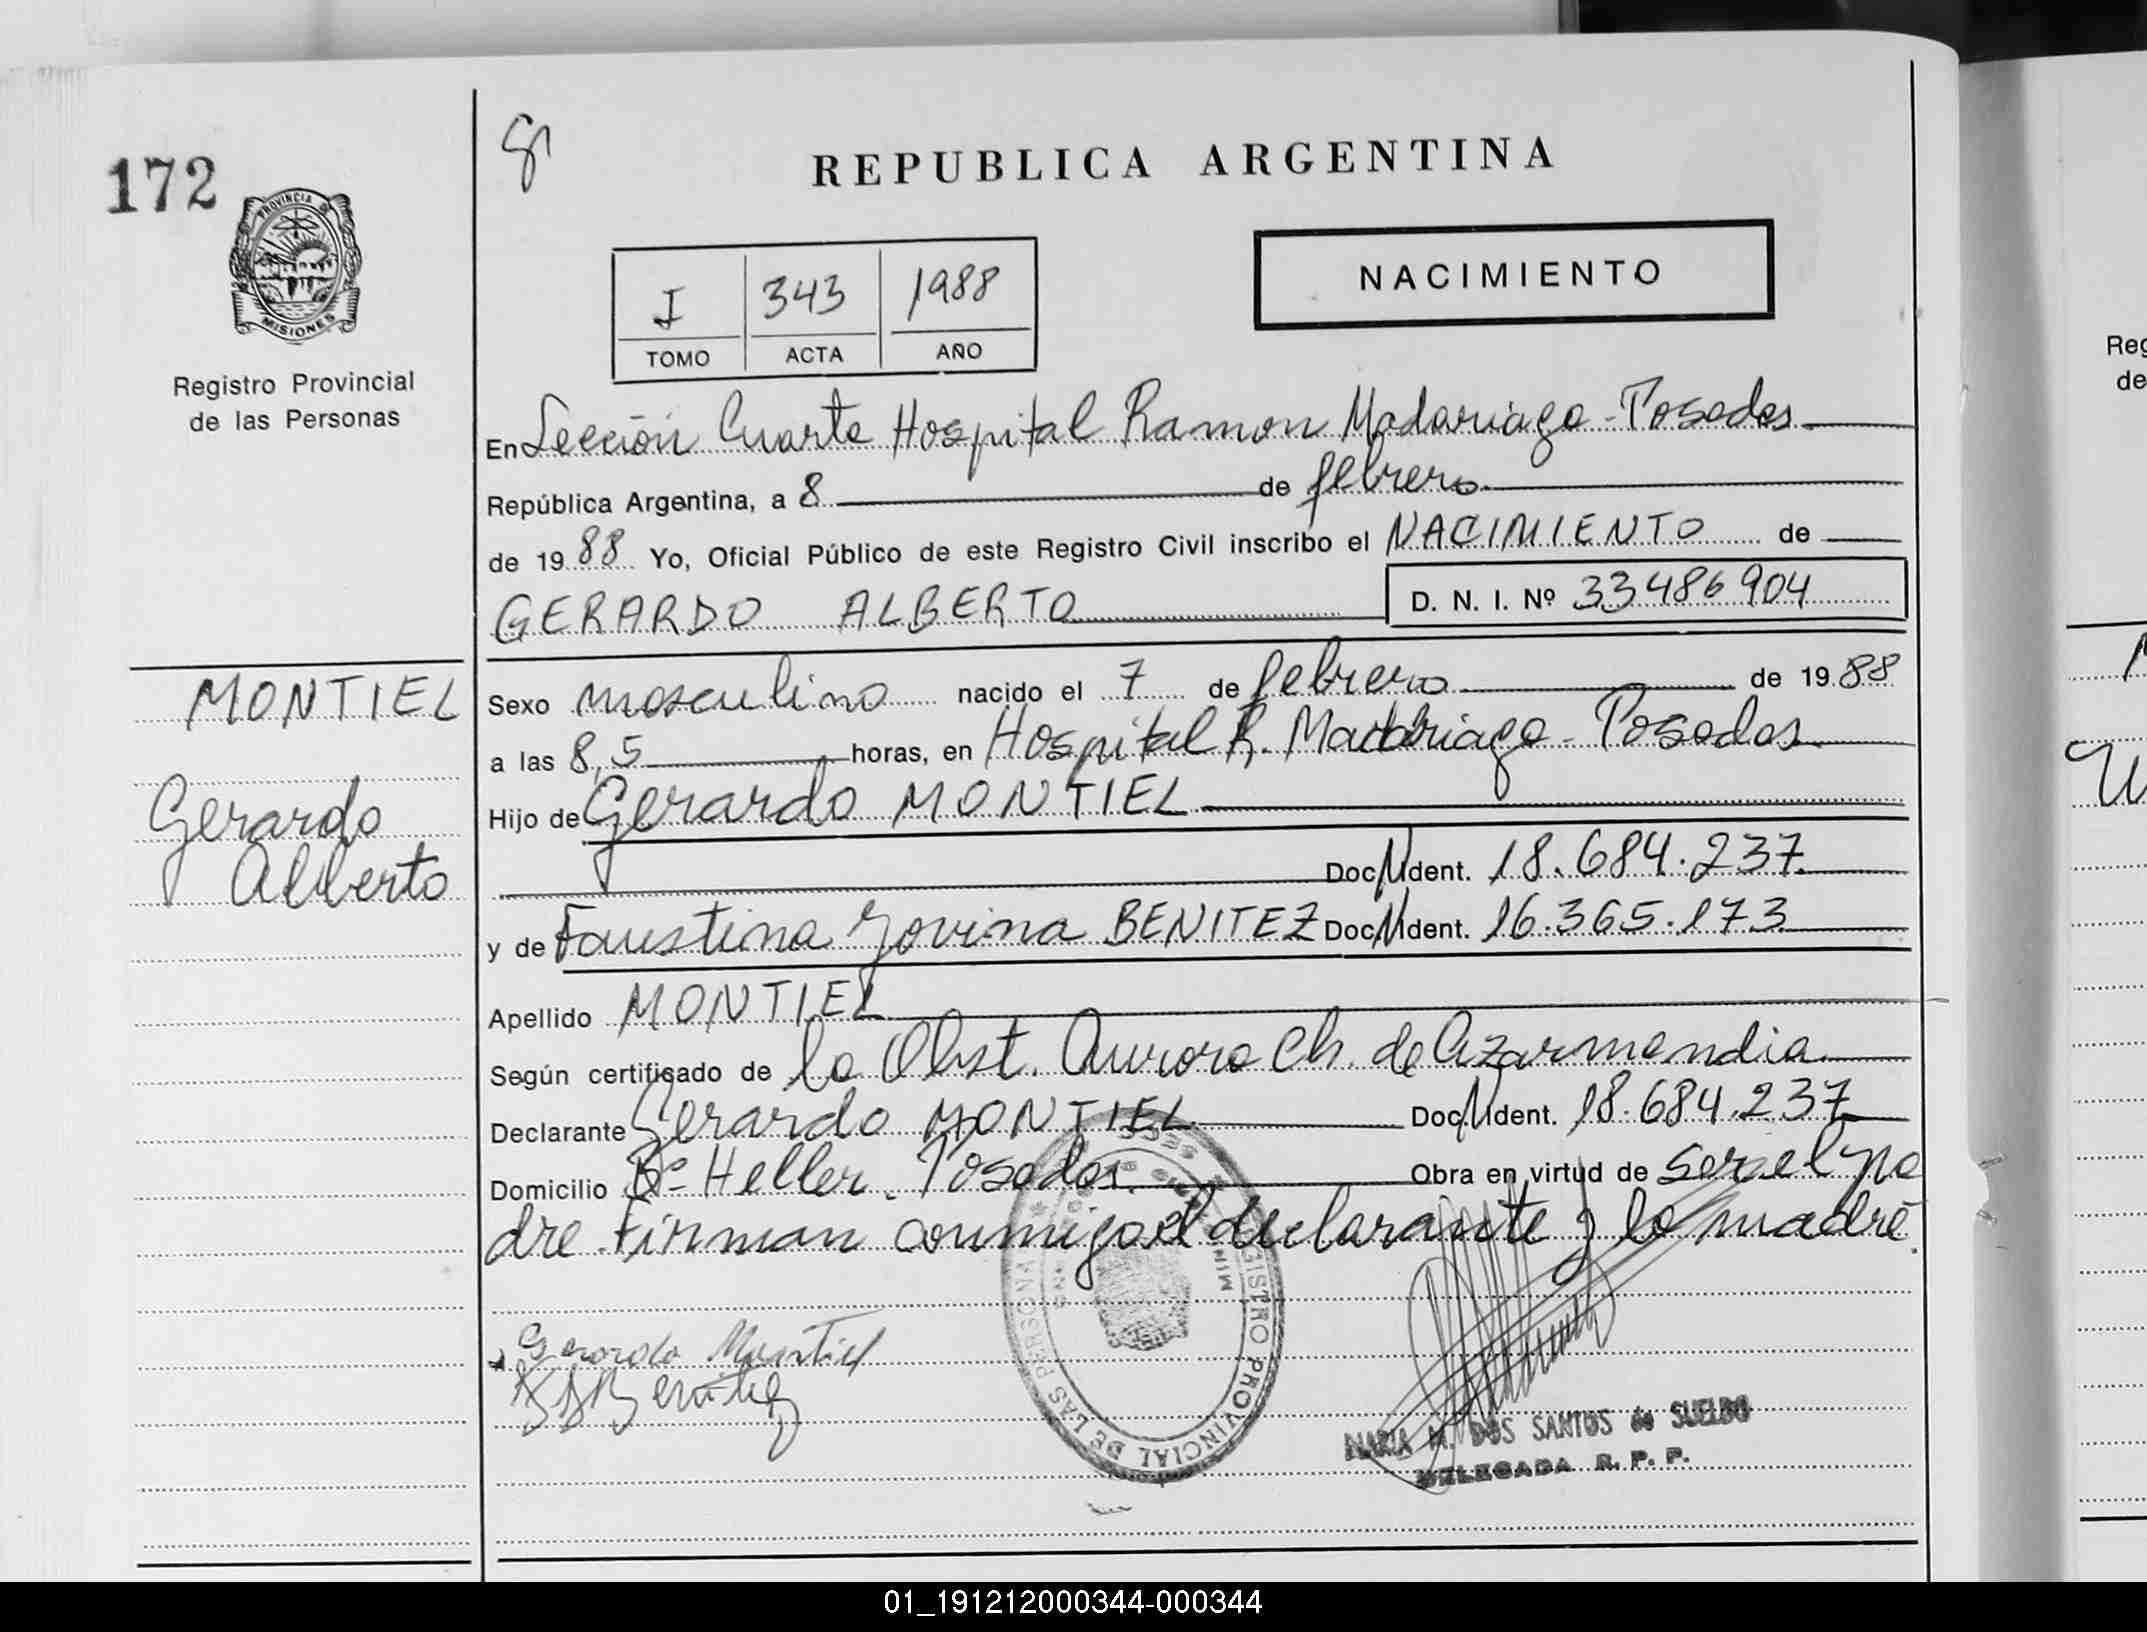 172
PROVINCIA DE
MISIONES
Registro Provincial
de las Personas
MONTIEL
Gerardo
Alberto
REPUBLICA ARGENTINA
I 343 1988
TOMO ACTA AÑO
NACIMIENTO
En Sección Cuarta Hospital Ramon Madariaga - Posadas
República Argentina, a 8 de febrero
de 19 88 Yo, Oficial Público de este Registro Civil inscribo el NACIMIENTO de
GERARDO ALBERTO D. N. I. Nº 33486904
Sexo masculino nacido el 7 de febrero de 19 88
a las 8,5 horas, en Hospital R. Madariaga - Posadas
Hijo de Gerardo MONTIEL
Doc. Ident. 18.684.237
y de Faustina Jovina BENITEZ Doc. Ident. 16.365.173
Apellido MONTIEL
Según certificado de la Obst. Aurora Ch. de Azarmendia
Declarante Gerardo MONTIEL Doc. Ident. 18.684.237
Domicilio Bº Heller. Posadas. Obra en virtud de ser el pa
dre. Firman conmigo el declarante y la madre.
Gerardo Montiel
Benitez
REGISTRO PROVINCIAL DE LAS PERSONAS
MARIA M. DOS SANTOS de SUELDO
DELEGADA R. P. P.
Reg
de
01_191212000344-000344